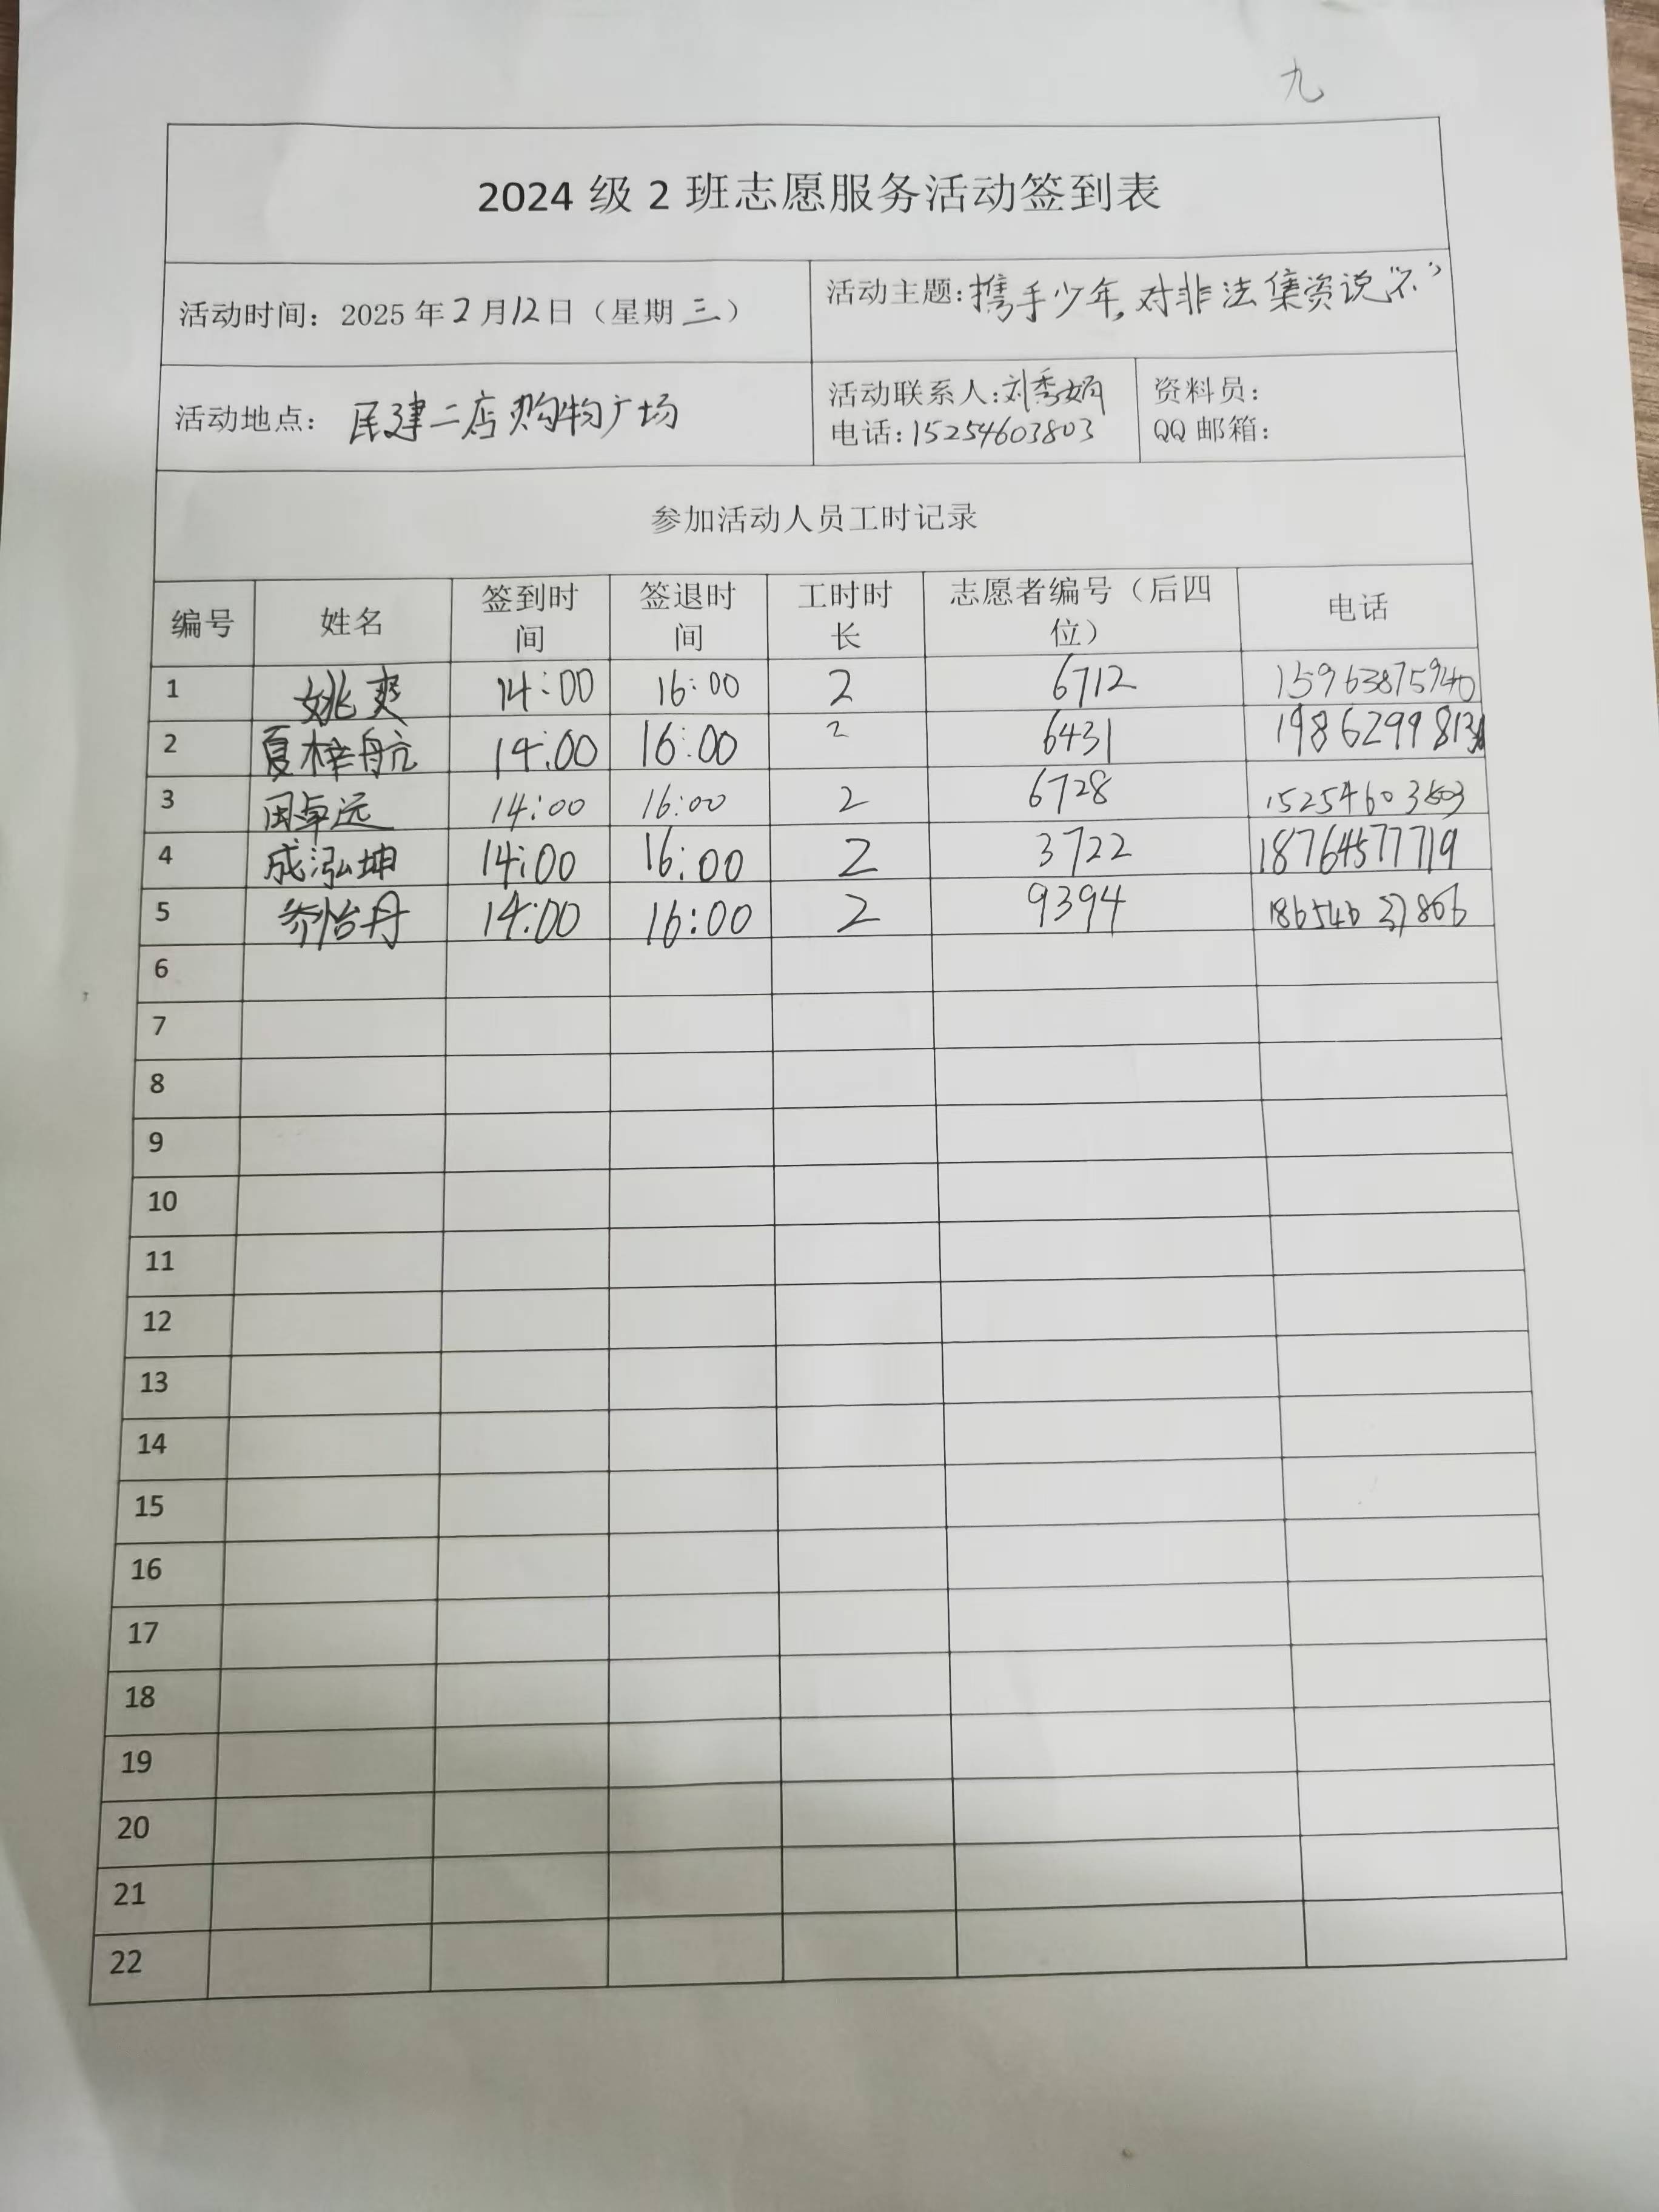 九
2024 级 2 班志愿服务活动签到表
活动时间：2025 年 2 月 12 日（星期 三 ）
活动主题：携手少年，对非法集资说“不”
活动地点： 民建二店购物广场
活动联系人：刘秀娟
电话：15254603803
资料员：
QQ 邮箱：
参加活动人员工时记录
编号 姓名 签到时间 签退时间 工时时长 志愿者编号（后四位） 电话
1 姚爽 14:00 16:00 2 6712 15963875940
2 夏梓航 14:00 16:00 2 6431
3 田卓远 14:00 16:00 2 6728 15254603803
4 成泓坤 14:00 16:00 2 3722 18764577719
5 乔怡丹 14:00 16:00 2 9394
6
7
8
9
10
11
12
13
14
15
16
17
18
19
20
21
22